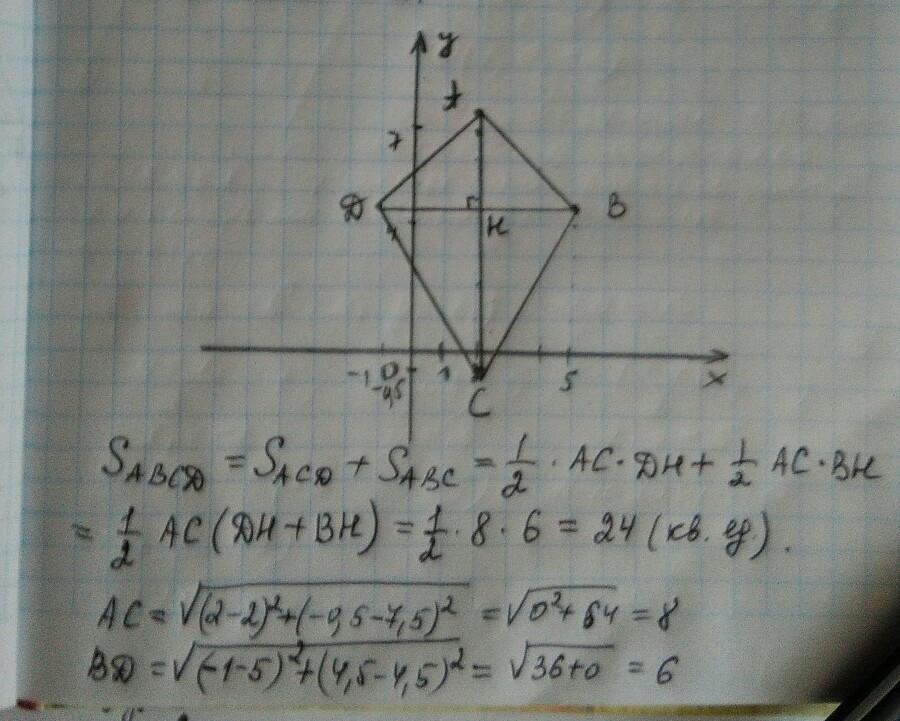 y
A
7
D B
H
4
-1 0 1 5 x
-0,5
C
S_ABCD = S_ACD + S_ABC = 1/2 · AC · DH + 1/2 AC · BH
= 1/2 AC (DH + BH) = 1/2 · 8 · 6 = 24 (кв. ед.).
AC = √((2-2)²+(-0,5-7,5)²) = √(0²+64) = 8
BD = √((-1-5)²+(4,5-4,5)²) = √(36+0) = 6